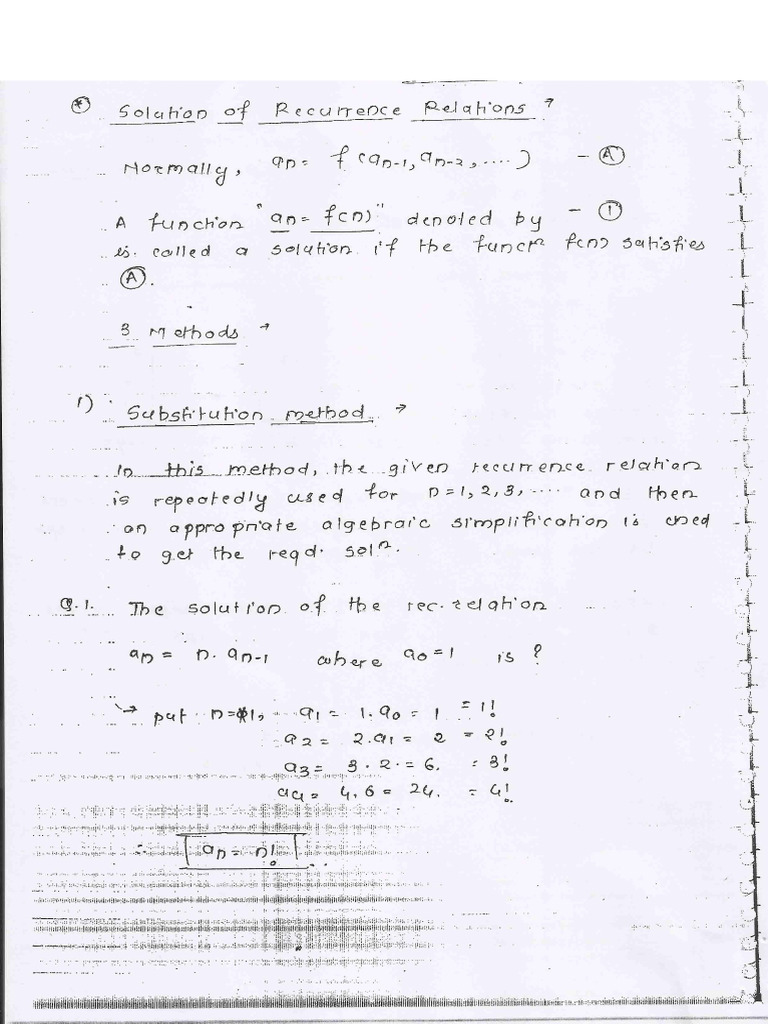 * Solution of Recurrence Relations →
Normally, an = f(an-1, an-2, ....) - A
A function "an = f(n)" denoted by - 1
is called a solution if the funcⁿ f(n) satisfies
A.
3 Methods →
1) Substitution method →
In this method, the given recurrence relation
is repeatedly used for n=1, 2, 3, .... and then
an appropriate algebraic simplification is used
to get the reqd. solⁿ.
Q.1. The solution of the rec. relation
an = n. an-1 where a0 = 1 is ?
→ put n=1, a1 = 1.a0 = 1 = 1!
a2 = 2.a1 = 2 = 2!
a3 = 3.2. = 6. = 3!
a4 = 4.6 = 24. = 4!
∴ an = n!